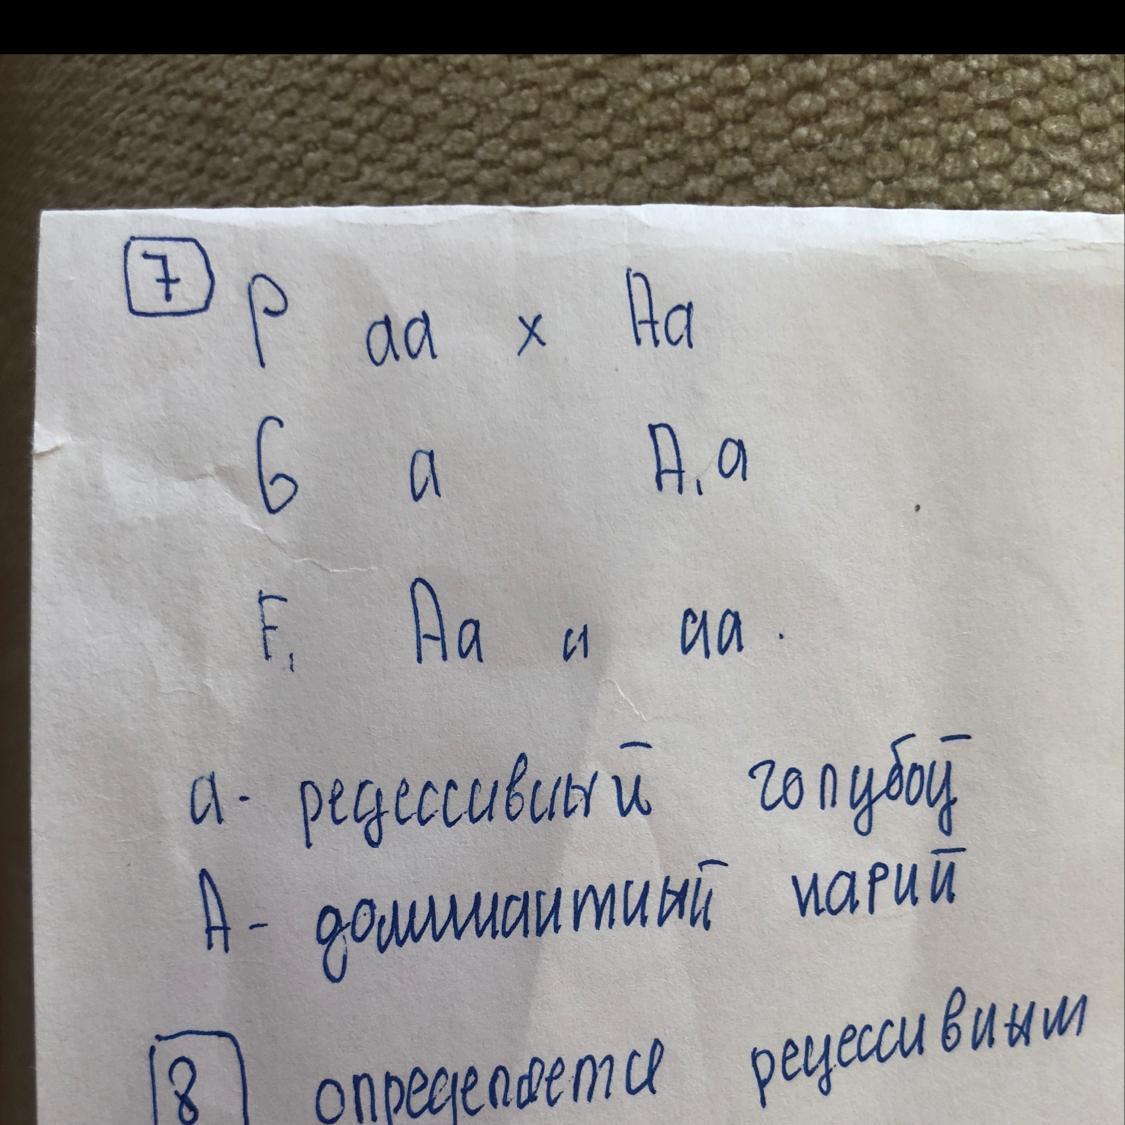 7 P aa x Aa
G a A, a
F₁ Aa и aa.
a - рецессивный голубой
A - доминантный карий
8 определяется рецессивным